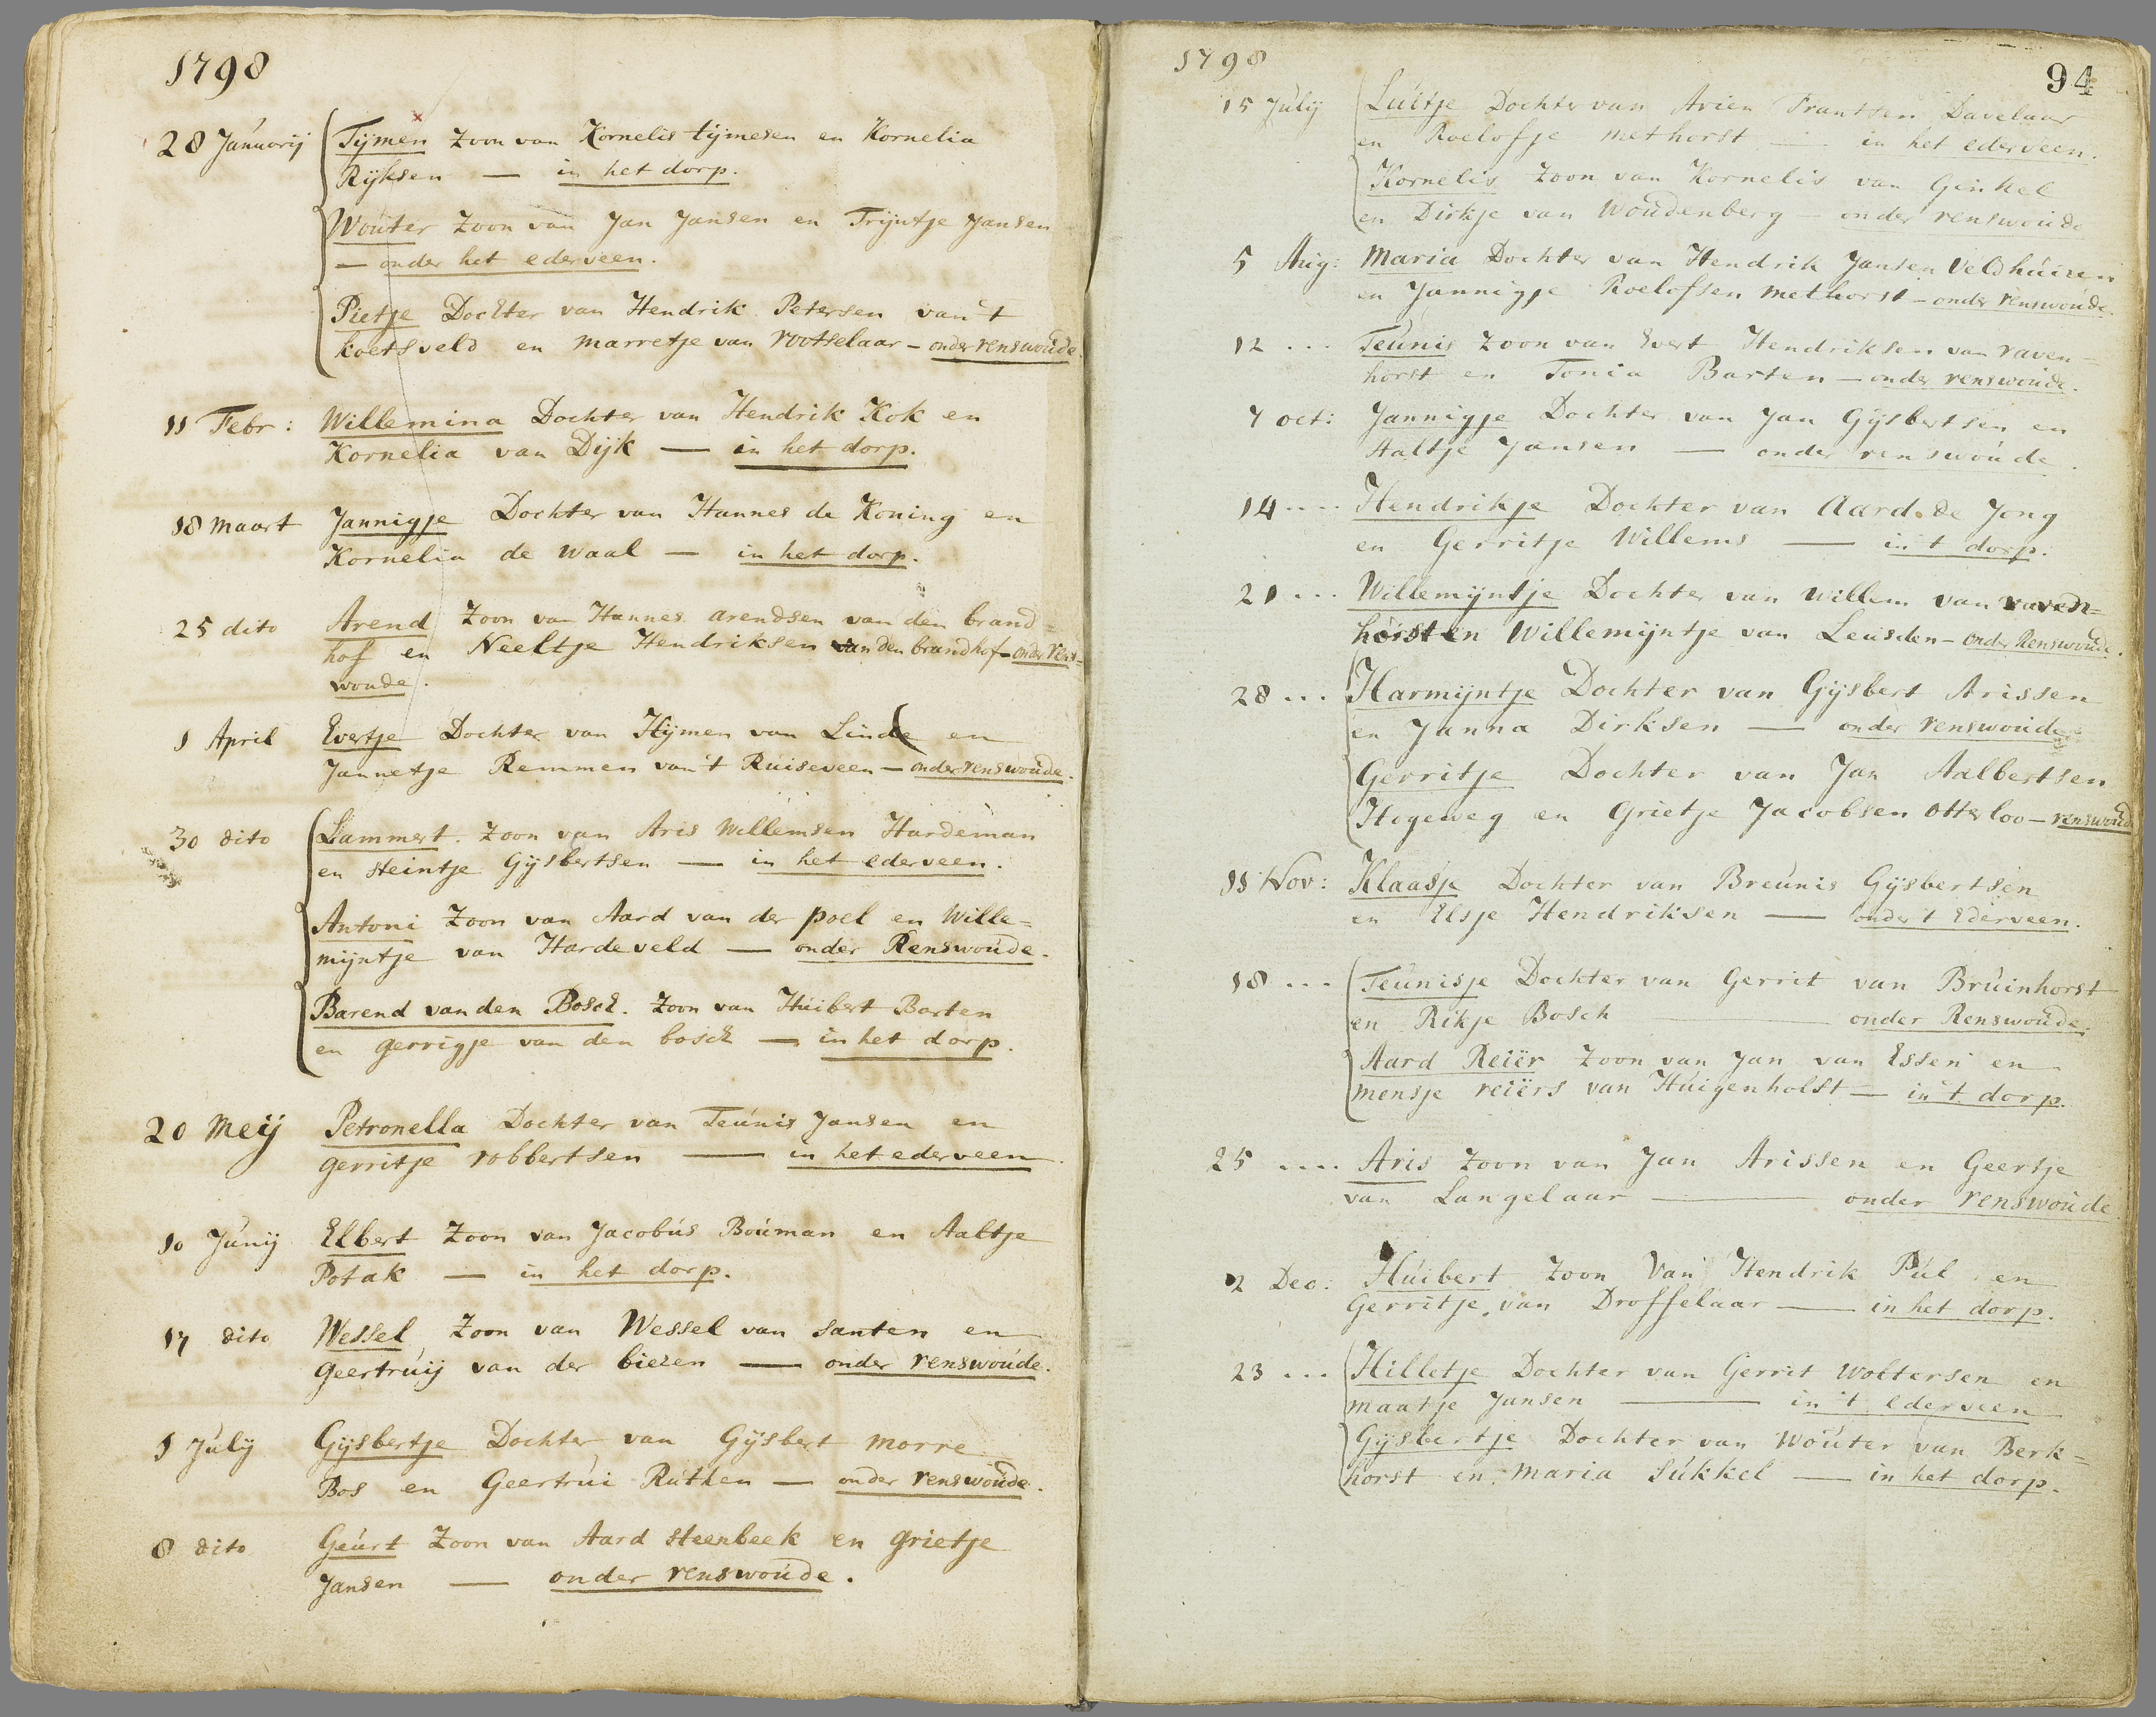 1798
28 Januarij Tijmen Zoon van Kornelis tijmesen en Kornelia
Rijksen — in het dorp.
Wouter Zoon van Jan Jansen en Trijntje Jansen
— onder het ederveen.
Pietje Dochter van Hendrik Petersen van 't
koetsveld en marretje van rootselaar — onder renswoude.
11 Febr: Willemina Dochter van Hendrik Kok en
Kornelia van Dijk — in het dorp.
18 maart Jannigje Dochter van Hannes de Koning en
Kornelia de Waal — in het dorp.
25 dito Arend Zoon van Hannes arendsen van den brand=
hof en Neeltje Hendriksen van den brandhof — onder rens=
woude.
1 April Evertje Dochter van Hijmen van Linde en
Jannetje Remmen van 't Ruiseveen — onder renswoude.
30 dito Lammert. Zoon van Aris Willemsen Hardeman
en steintje Gijsbertsen — in het ederveen.
Antoni Zoon van Aard van der poel en Wille=
mijntje van Hardeveld — onder Renswoude.
Barend van den Bosch. Zoon van Huibert Barten
en gerrigje van den bosch — in het dorp.
20 Meij Petronella Dochter van Teunis Jansen en
gerritje robbertsen — in het ederveen.
10 Junij Elbert Zoon van Jacobus Bouman en Aaltje
Potak — in het dorp.
17 dito Wessel Zoon van Wessel van santen en
geertruij van der biezen — onder renswoude.
1 Julij Gijsbertje Dochter van Gijsbert morre
Bos en Geertrui Ruthen — onder renswoude.
8 dito Geurt Zoon van Aard steenbeek en grietje
Jansen — onder renswoude.
1798
94
15 Julij Luitje Dochter van Arien Frantsen Davelaar
en Roelofje methorst — in het ederveen.
Kornelis Zoon van Kornelis van Ginkel
en Dirkje van Woudenberg — onder renswoude
5 Aug: Maria Dochter van Hendrik Jansen Veldhuizen
en Jannigje Roelofsen methorst — onder renswoude.
12 ... Teunis Zoon van Evert Hendriksen van raven=
horst en Tonia Barten — onder renswoude.
7 oct: Jannigje Dochter van Jan Gijsbertsen en
Aaltje Jansen — onder renswoude.
14 .... Hendrikje Dochter van Aard de Jong
en Gerritje Willems — in t dorp.
21 ... Willemijntje Dochter van willem van raven=
horst en Willemijntje van Leusden — onder Renswoude.
28 ... Harmijntje Dochter van Gijsbert Arissen
en Janna Dirksen — onder renswoude
Gerritje Dochter van Jan Aalbertsen
Hogeweg en Grietje Jacobsen otterloo — renswoude
11 Nov: Klaasje Dochter van Breunis Gijsbertsen
en Elsje Hendriksen — onder t Ederveen.
18 ... Teunisje Dochter van Gerrit van Bruinhorst
en Rikje Bosch — onder Renswoude.
Aard Reiër Zoon van Jan van Essen en
mensje reiërs van Huigenholst — in 't dorp.
25 .... Aris Zoon van Jan Arissen en Geertje
van Langelaar — onder renswoude
2 Dec: Huibert Zoon Van Hendrik Pul en
Gerritje van Droffelaar — in het dorp.
23 ... Hilletje Dochter van Gerrit woltersen en
maatje Jansen — in 't ederveen
Gijsbertje Dochter van Wouter van Berk=
horst en maria sukkel — in het dorp.